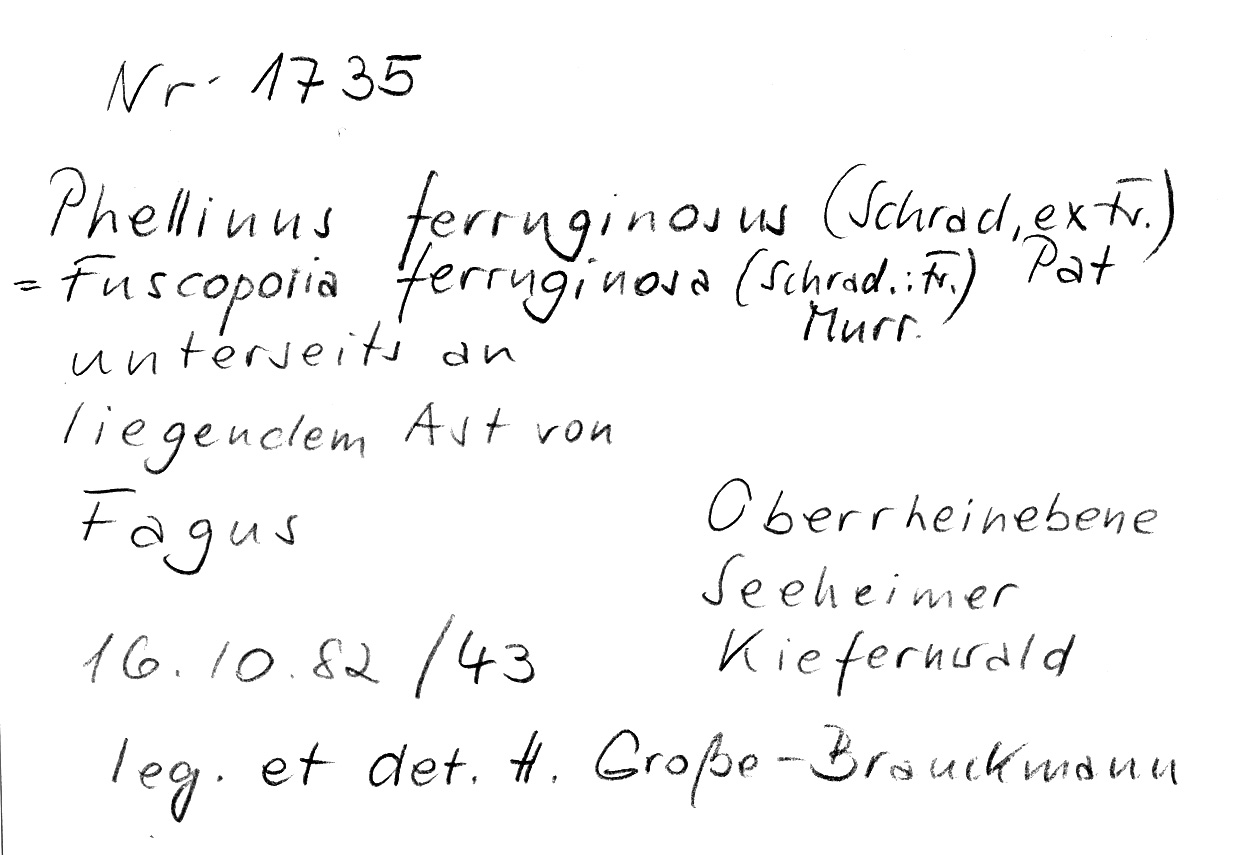 Nr. 1735
Phellinus ferruginosus (Schrad, ex Fr.) Pat
= Fuscoporia ferruginosa (Schrad.: Fr.) Murr.
unterseits an
liegendem Ast von
Fagus
Oberrheinebene
Seeheimer
Kiefernwald
16.10.82 /43
leg. et det. H. Große-Brauckmann